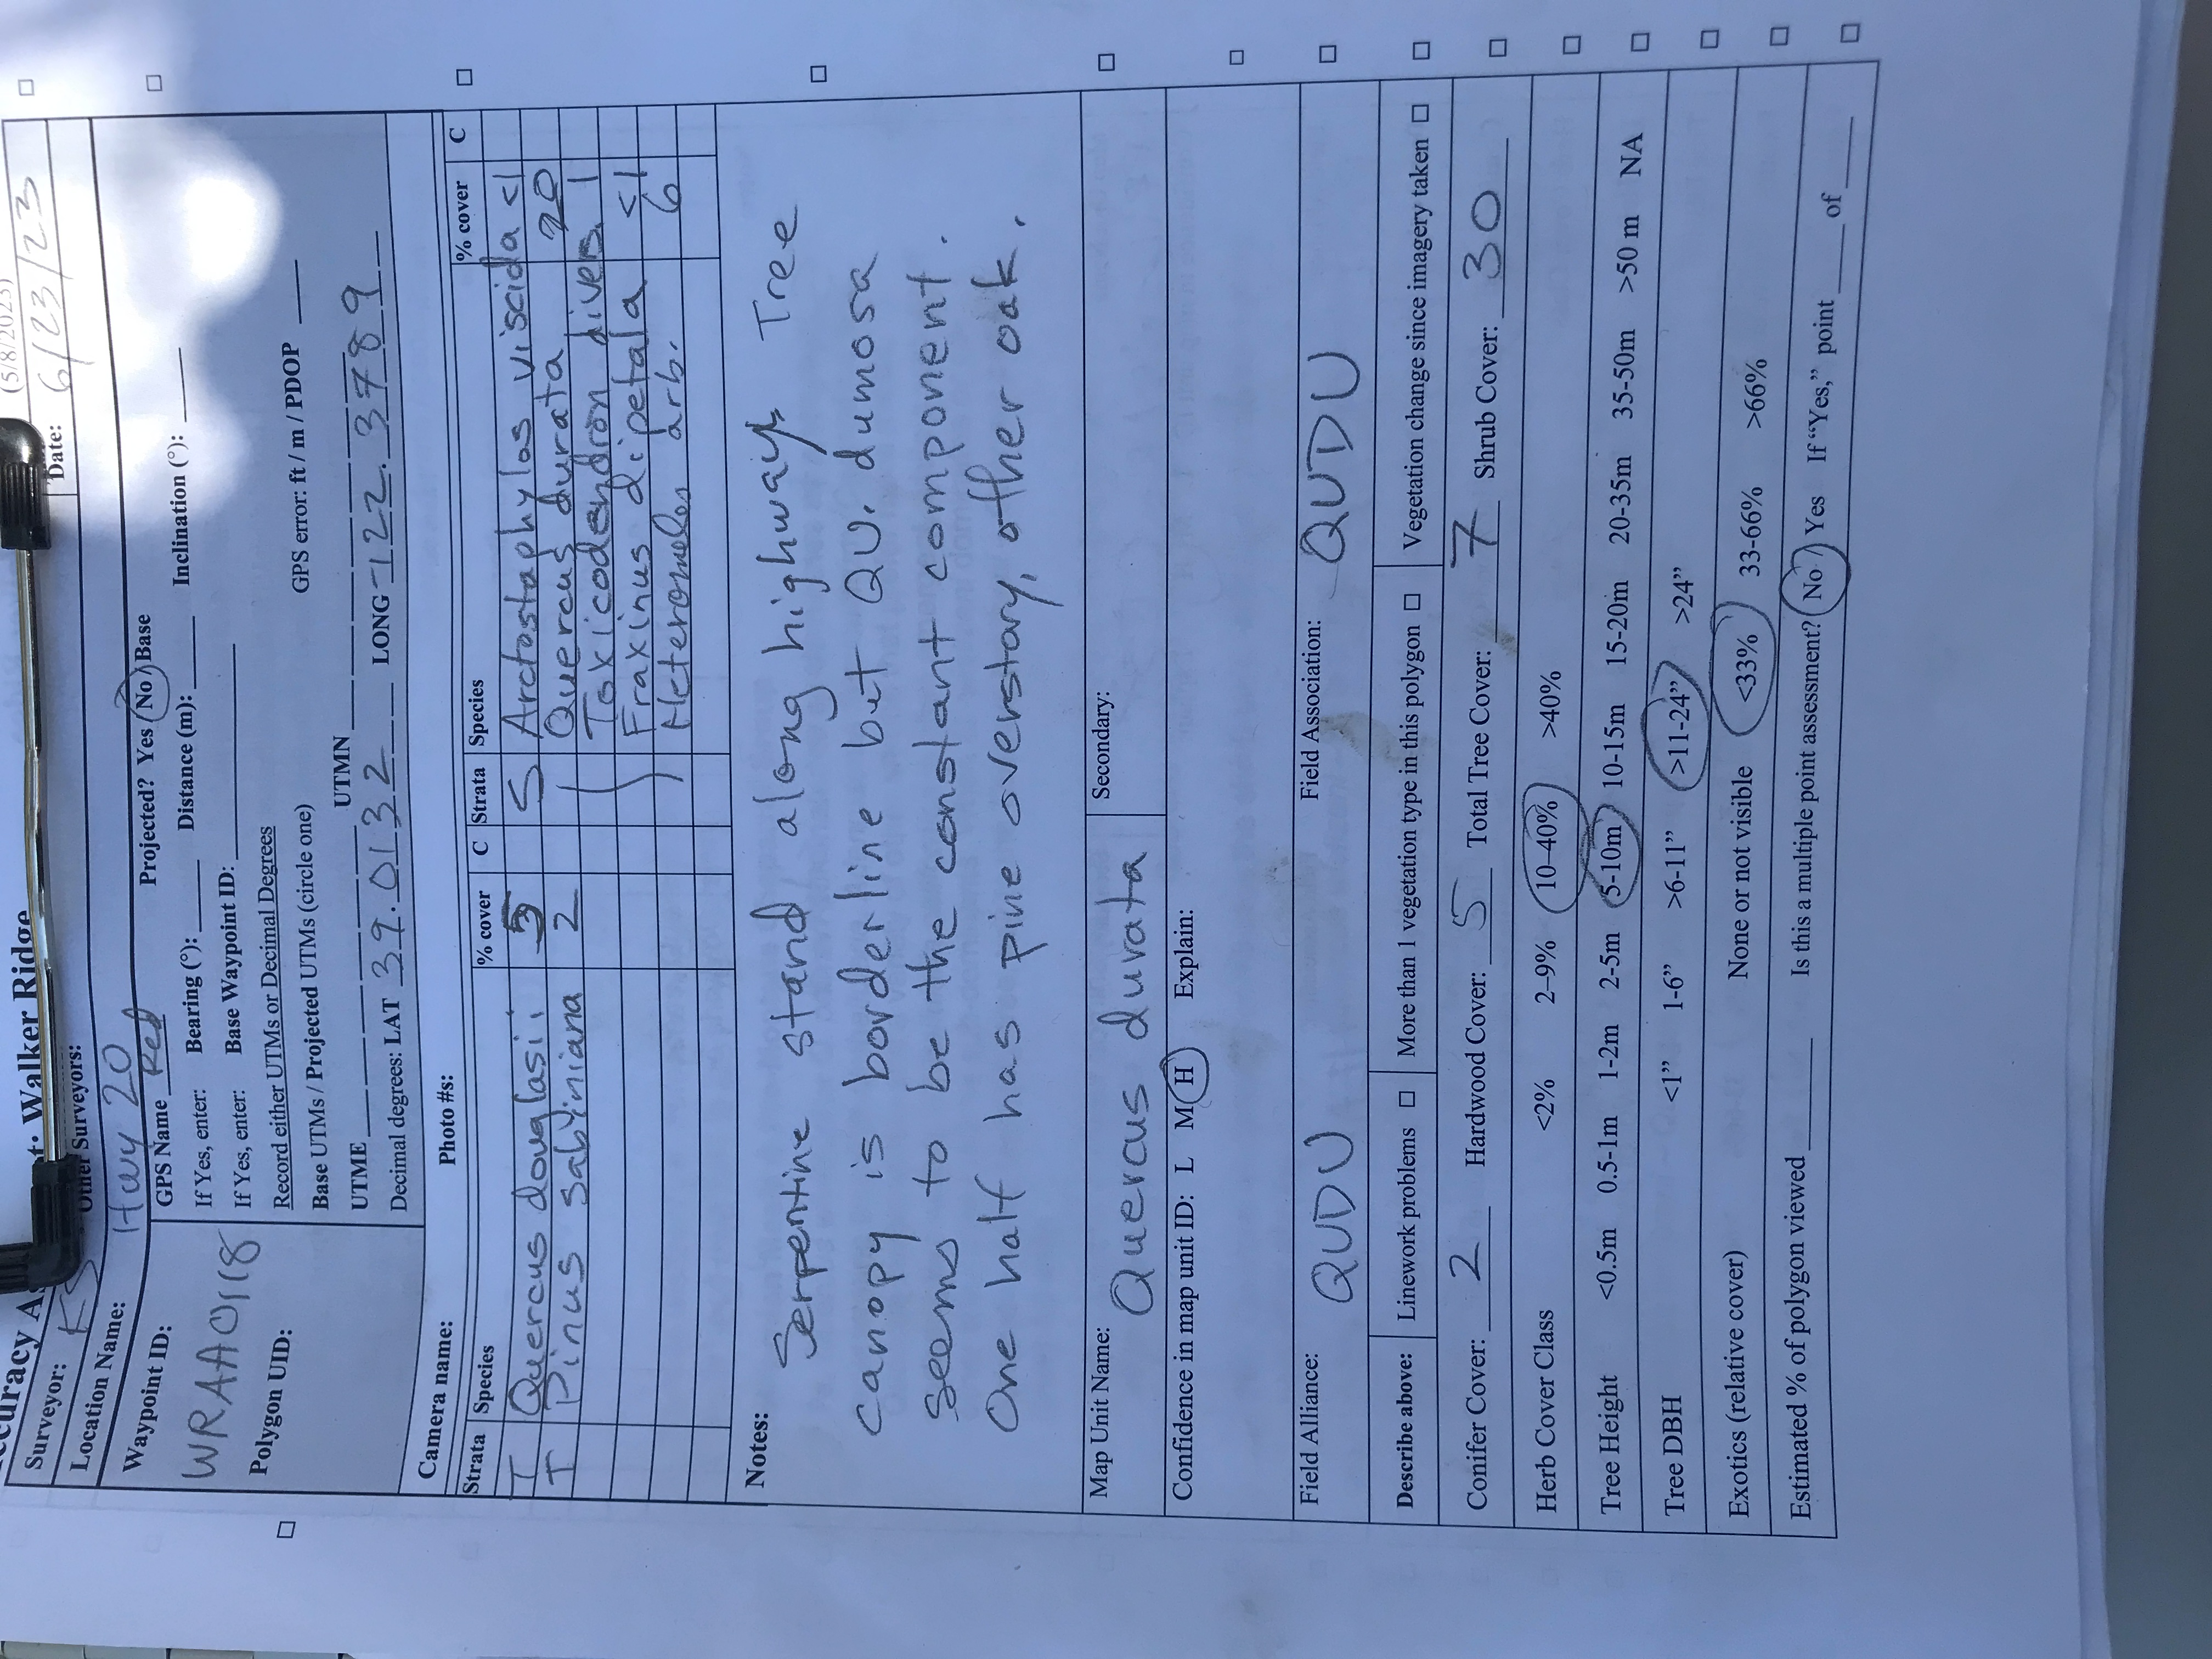 (5/8/2023)
ccuracy As t: Walker Ridge
Surveyor: KS Other Surveyors: Date: 6/23/23
Location Name: Hwy 20
Waypoint ID: WRAA0118
GPS Name Red Projected? Yes / No / Base
If Yes, enter: Bearing (°): Distance (m): Inclination (°):
If Yes, enter: Base Waypoint ID:
Polygon UID:
Record either UTMs or Decimal Degrees
Base UTMs / Projected UTMs (circle one) GPS error: ft / m / PDOP
UTME UTMN
Decimal degrees: LAT 39.0132 LONG -122.3789
Camera name: Photo #s:
Strata Species % cover C Strata Species % cover C
T Quercus douglasii 5 S Arctostaphylos viscida <1
T Pinus sabiniana 2 Quercus durata 20
Toxicodendron divers. 1
Fraxinus dipetala <1
Heteromeles arb. 6
Notes: Serpentine stand along highway. Tree
canopy is borderline but QU. dumosa
seems to be the constant component.
One half has pine overstory, other oak.
Map Unit Name: Quercus durata Secondary:
Confidence in map unit ID: L M H Explain:
Field Alliance: QUDU Field Association: QUDU
Describe above: Linework problems □ More than 1 vegetation type in this polygon □ Vegetation change since imagery taken □
Conifer Cover: 2 Hardwood Cover: 5 Total Tree Cover: 7 Shrub Cover: 30
Herb Cover Class <2% 2–9% 10-40% >40%
Tree Height <0.5m 0.5-1m 1-2m 2-5m 5-10m 10-15m 15-20m 20-35m 35-50m >50 m NA
Tree DBH <1” 1-6” >6-11” >11-24” >24”
Exotics (relative cover) None or not visible <33% 33-66% >66%
Estimated % of polygon viewed Is this a multiple point assessment? No / Yes If “Yes,” point of